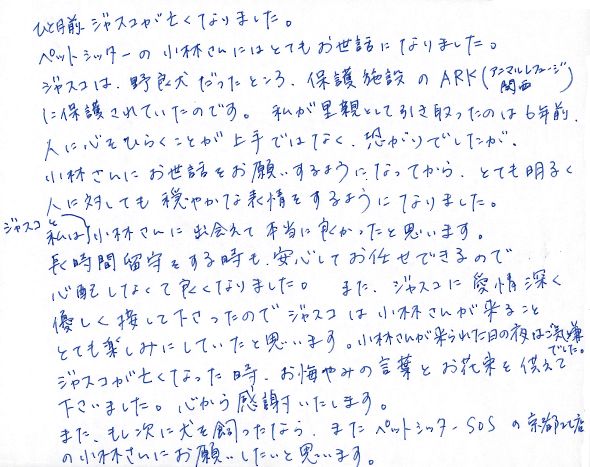 ひと月前、ジャスコが亡くなりました。
ペットシッターの小林さんにはとてもお世話になりました。
ジャスコは、野良犬だったところ、保護施設のARK(アニマルレフュージ関西)
に保護されていたのです。私が里親として引き取ったのは6年前、
人に心をひらくことが上手ではなく、恐がりでしたが、
小林さんにお世話をお願いするようになってから、とても明るく
人に対しても穏やかな表情をするようになりました。
ジャスコと私は小林さんに出会えて本当に良かったと思います。
長時間留守をする時も、安心してお任せできるので
心配しなくて良くなりました。また、ジャスコに愛情深く
優しく接して下さったのでジャスコは小林さんが来ること
とても楽しみにしていたと思います。小林さんが来られた日の夜はご気嫌でした。
ジャスコが亡くなった時、お悔やみの言葉とお花束を供えて
下さいました。心から感謝いたします。
また、もし次に犬を飼ったなら、またペットシッターSOSの京都北店
の小林さんにお願いしたいと思います。